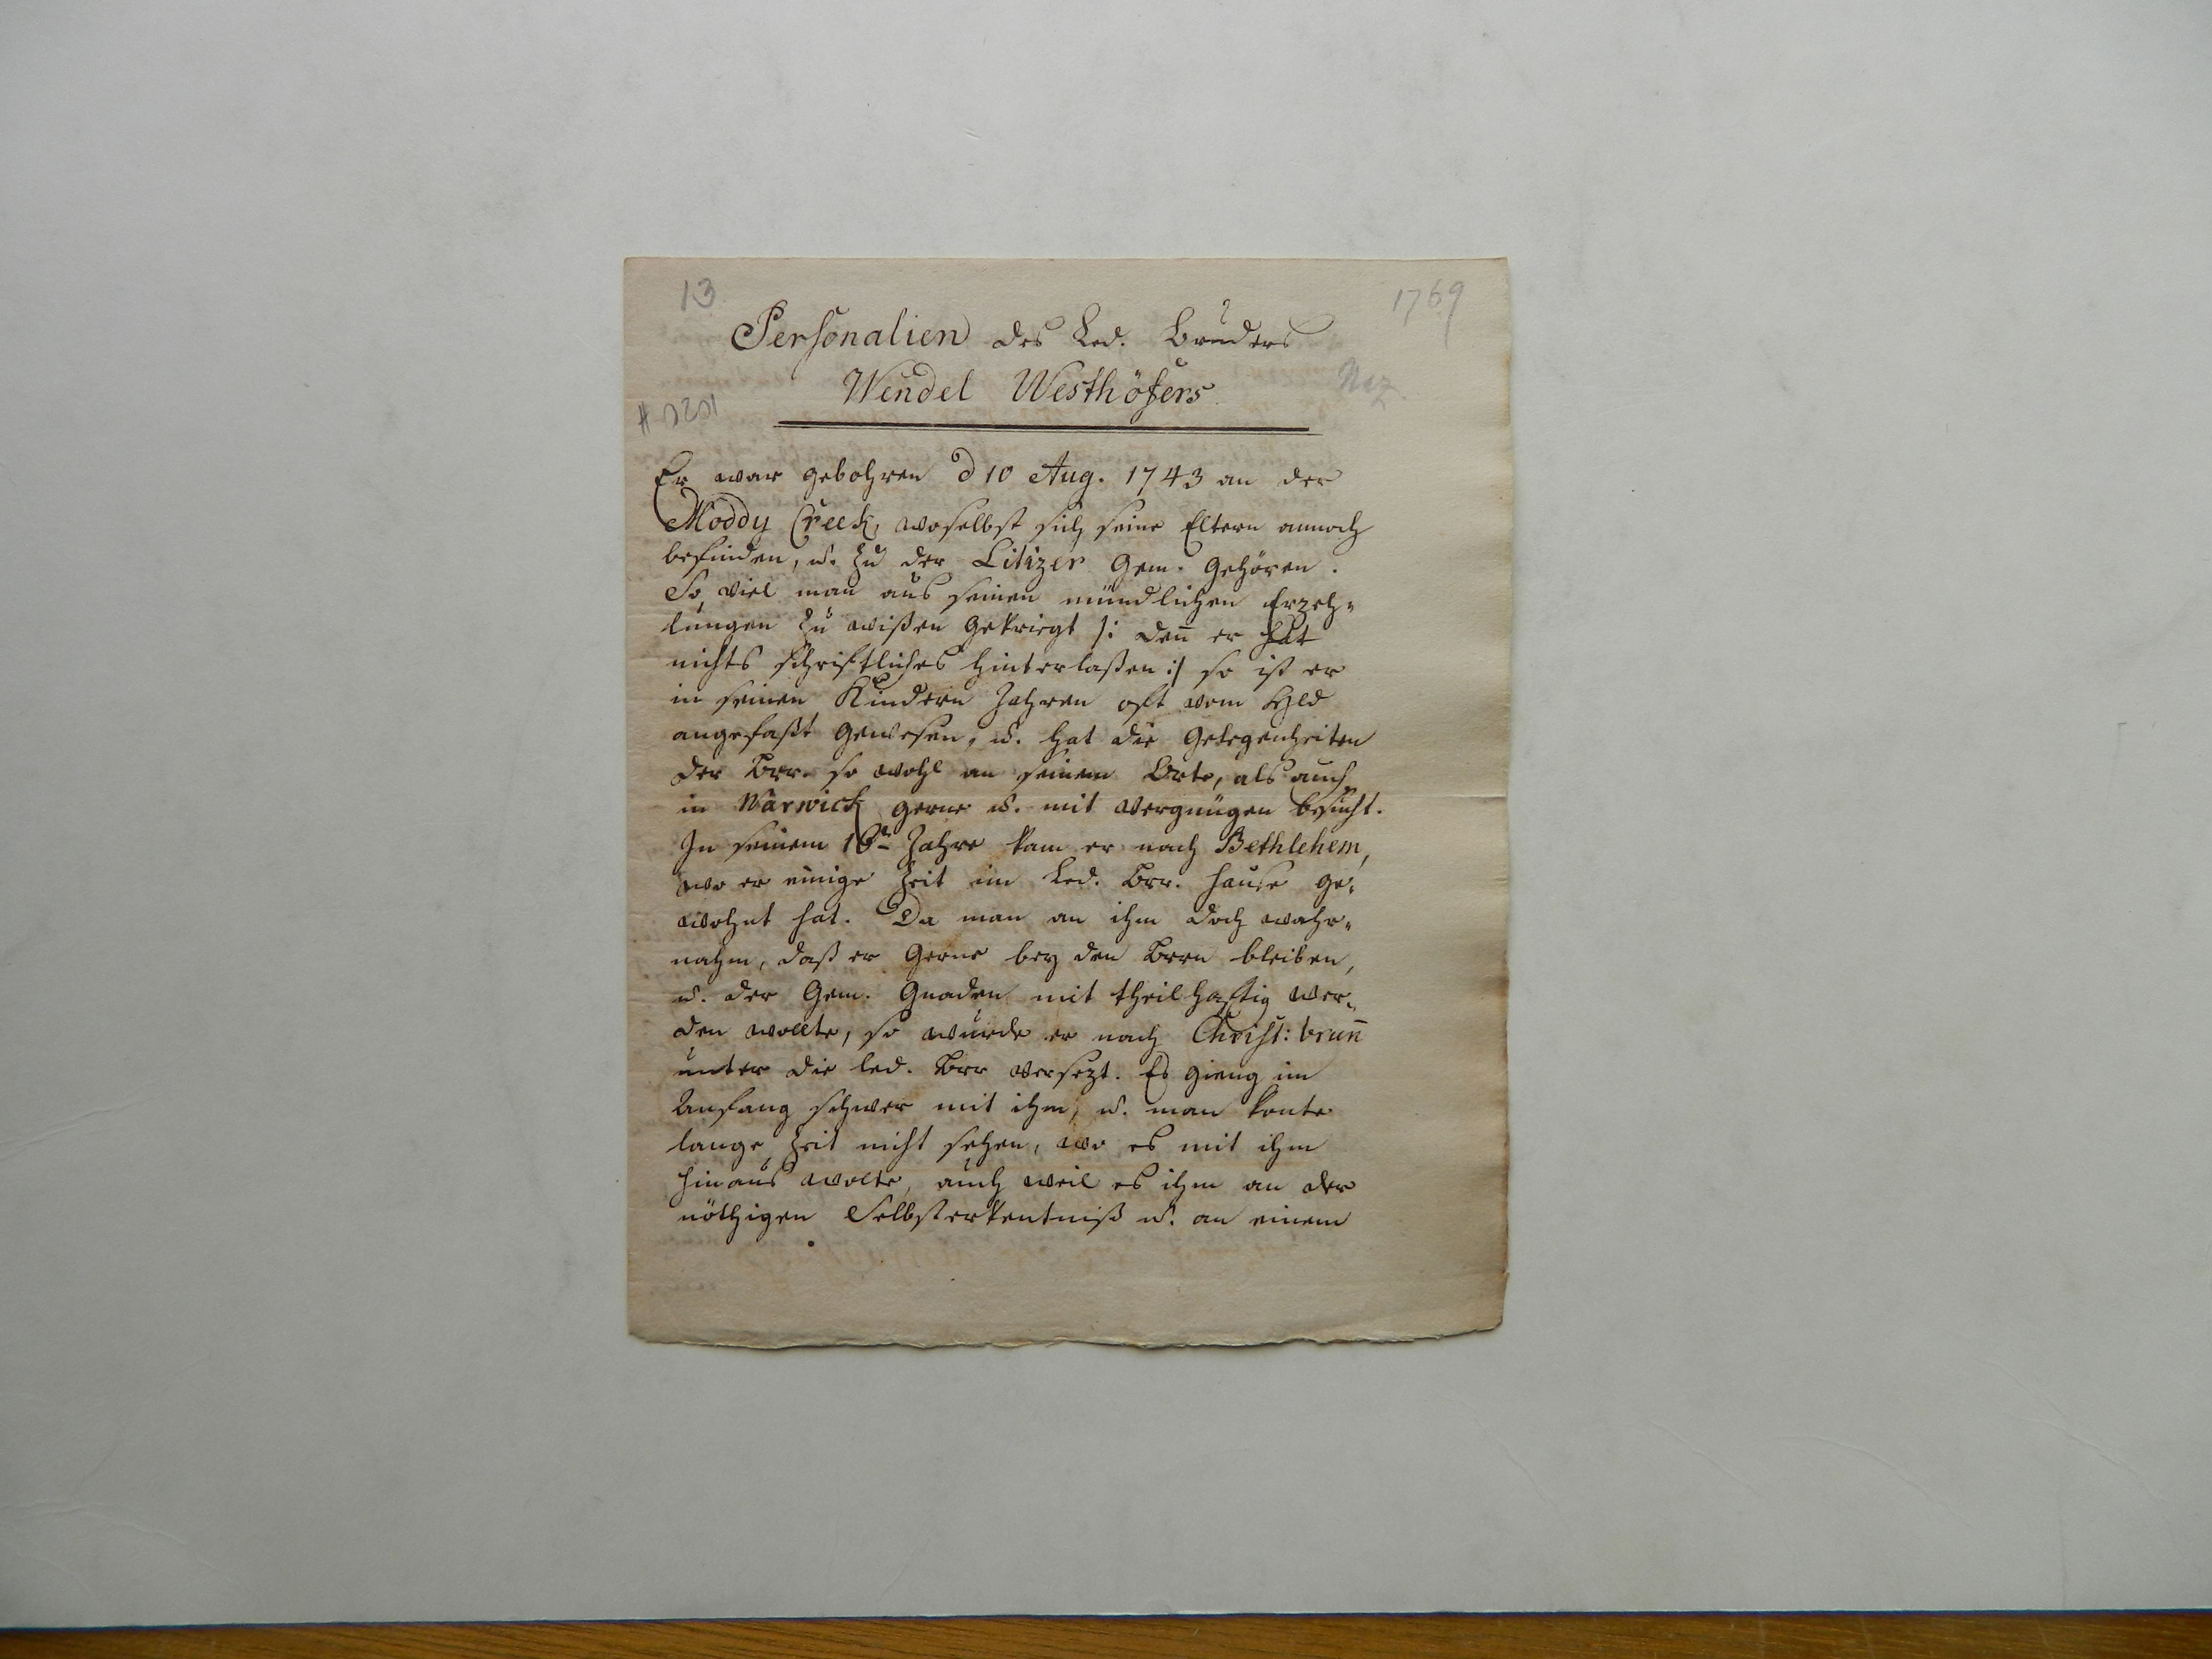 13
1769
Personalien des Led. Bruders
Wendel Westhöfers
Naz.
Er war gebohren d 10 Aug. 1743 an der
Moddy Creek, woselbst sich seine Eltern annoch
befinden, u. zu der Litizer Gem. gehören.
So viel man aus seinen mündlichen Erzeh-
lungen zu wißen gekriegt /: deñ er hat
nichts schriftliches hinterlaßen :/ so ist er
in seinen Kindern Jahren oft vom Hld
angefaßt gewesen, u. hat die Gelegenheiten
der Brr. so wohl an seinem Orte, als auch
in Warwick gerne u. mit Vergnügen besucht.
In seinem 16n Jahre kam er nach Bethlehem,
wo er einige Zeit im Led. Brr. Hause ge-
wohnt hat. Da man an ihm doch wahr-
nahm, daß er gerne bey den Brrn bleiben,
u. der Gem. Gnaden mit theilhaftig wer-
den wollte, so wurde er nach Christ: bruñ
unter die led. Brr versezt. Es gieng im
Anfang schwer mit ihm, u. man konte
lange Zeit nicht sehen, wo es mit ihm
hinaus wolte, auch weil es ihm an der
nöthigen Selbsterkentniß u. an einem